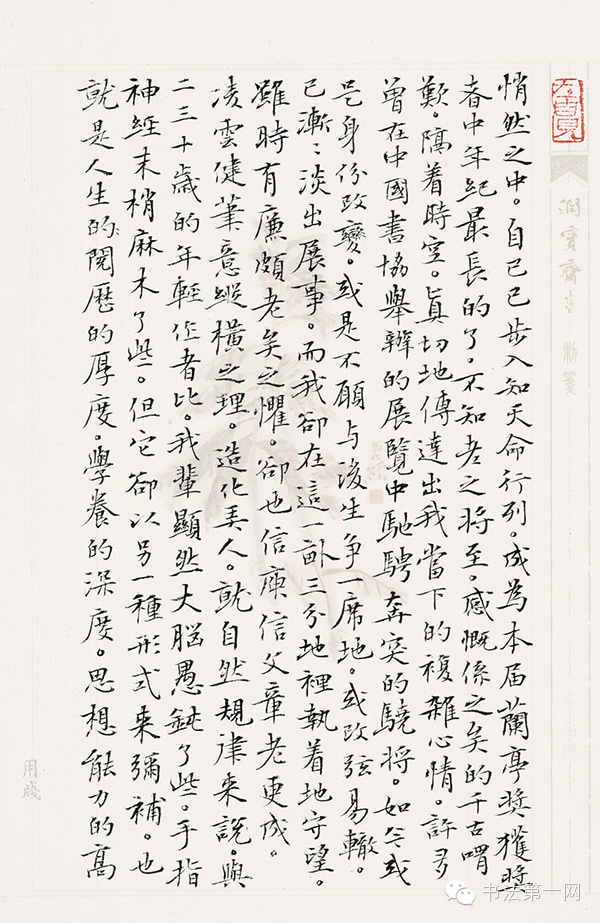 悄然之中。自己已步入知天命行列。成為本届蘭亭奖獲奖
者中年紀最長的了。不知老之将至。感慨係之矣的千古喟
歎。隔着時空。真切地傳達出我當下的複雜心情。許多
曾在中國書協舉辦的展覽中馳騁奔突的驍将。如今或
是身份改變。或是不願与後生争一席地。或改弦易轍。
已漸漸淡出展事。而我卻在這一畝三分地裡執着地守望。
雖時有廉頗老矣之懼。卻也信庾信文章老更成。
凌雲健筆意縱横之理。造化弄人。就自然規律来説。與
二三十歲的年輕作者比。我輩顯然大脑愚鈍了些。手指
神經末梢麻木了些。但它卻以另一種形式来彌補。也
就是人生的閱歷的厚度。學養的深度。思想能力的高
用牋
书法第一网